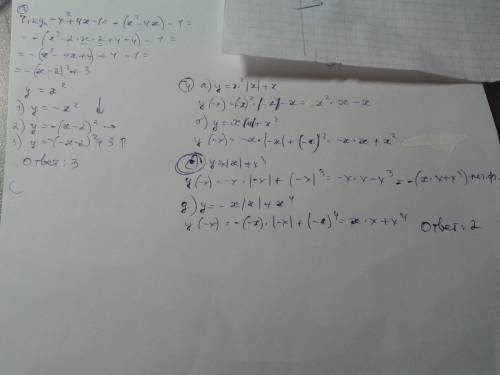 y = -x²+4x-1 = -(x²-4x)-1 =
= -(x²-2·x·2+4-4)-1 =
= -(x²-4x+4)+4-1 =
= -(x-2)²+3
y = x²
1) y = -x² ↓
2) y = -(x-2)² →
3) y = -(x-2)²+3 ↑
Ответ: 3
4) а) y = x²·|x|+x
y(-x) = (-x)²·|-x|-x = x²·x-x
б) y = x|x|+x²
y(-x) = -x·|-x|+(-x)² = -x·x+x²
y = x|x|+x³
y(-x) = -x·|-x|+(-x)³ = -x·x-x³ = -(x·x+x³)
д) y = -x|x|+x⁴
y(-x) = -(-x)·|-x|+(-x)⁴ = x·x+x⁴
Ответ: 2